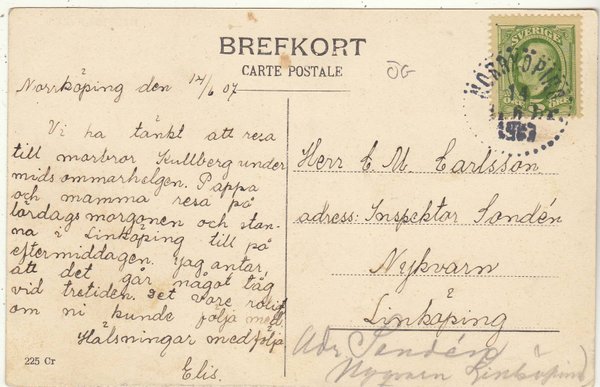 BREFKORT
CARTE POSTALE
ÖG
SVERIGE
ÖRE 5 ÖRE
NORRKÖPING
1907
Norrköping den 12/6 07
Vi ha tänkt att resa
till morbror Kullberg under
midsommarhelgen. Pappa
och mamma resa på
lördagsmorgonen och stan-
na i Linköping till på
eftermiddagen. Jag antar,
att det går något tåg
vid tretiden. Det vore roligt
om ni kunde följa med.
Hälsningar medfölja
Elis.
Herr C. M. Carlsson.
adress: Inspektor Sondén
Nykvarn
Linköping
Adr Sondén
Nyqvarn Linköping
225 Cr